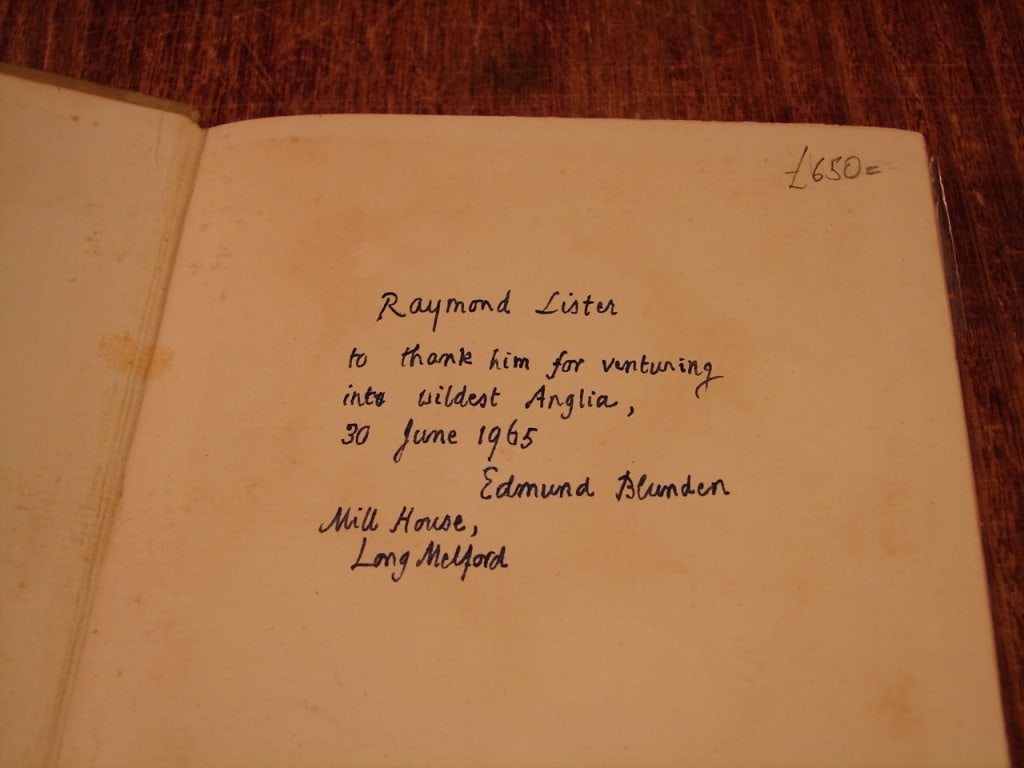 £650=
Raymond Lister
to thank him for venturing
into wildest Anglia,
30 June 1965
Edmund Blunden
Mill House,
Long Melford